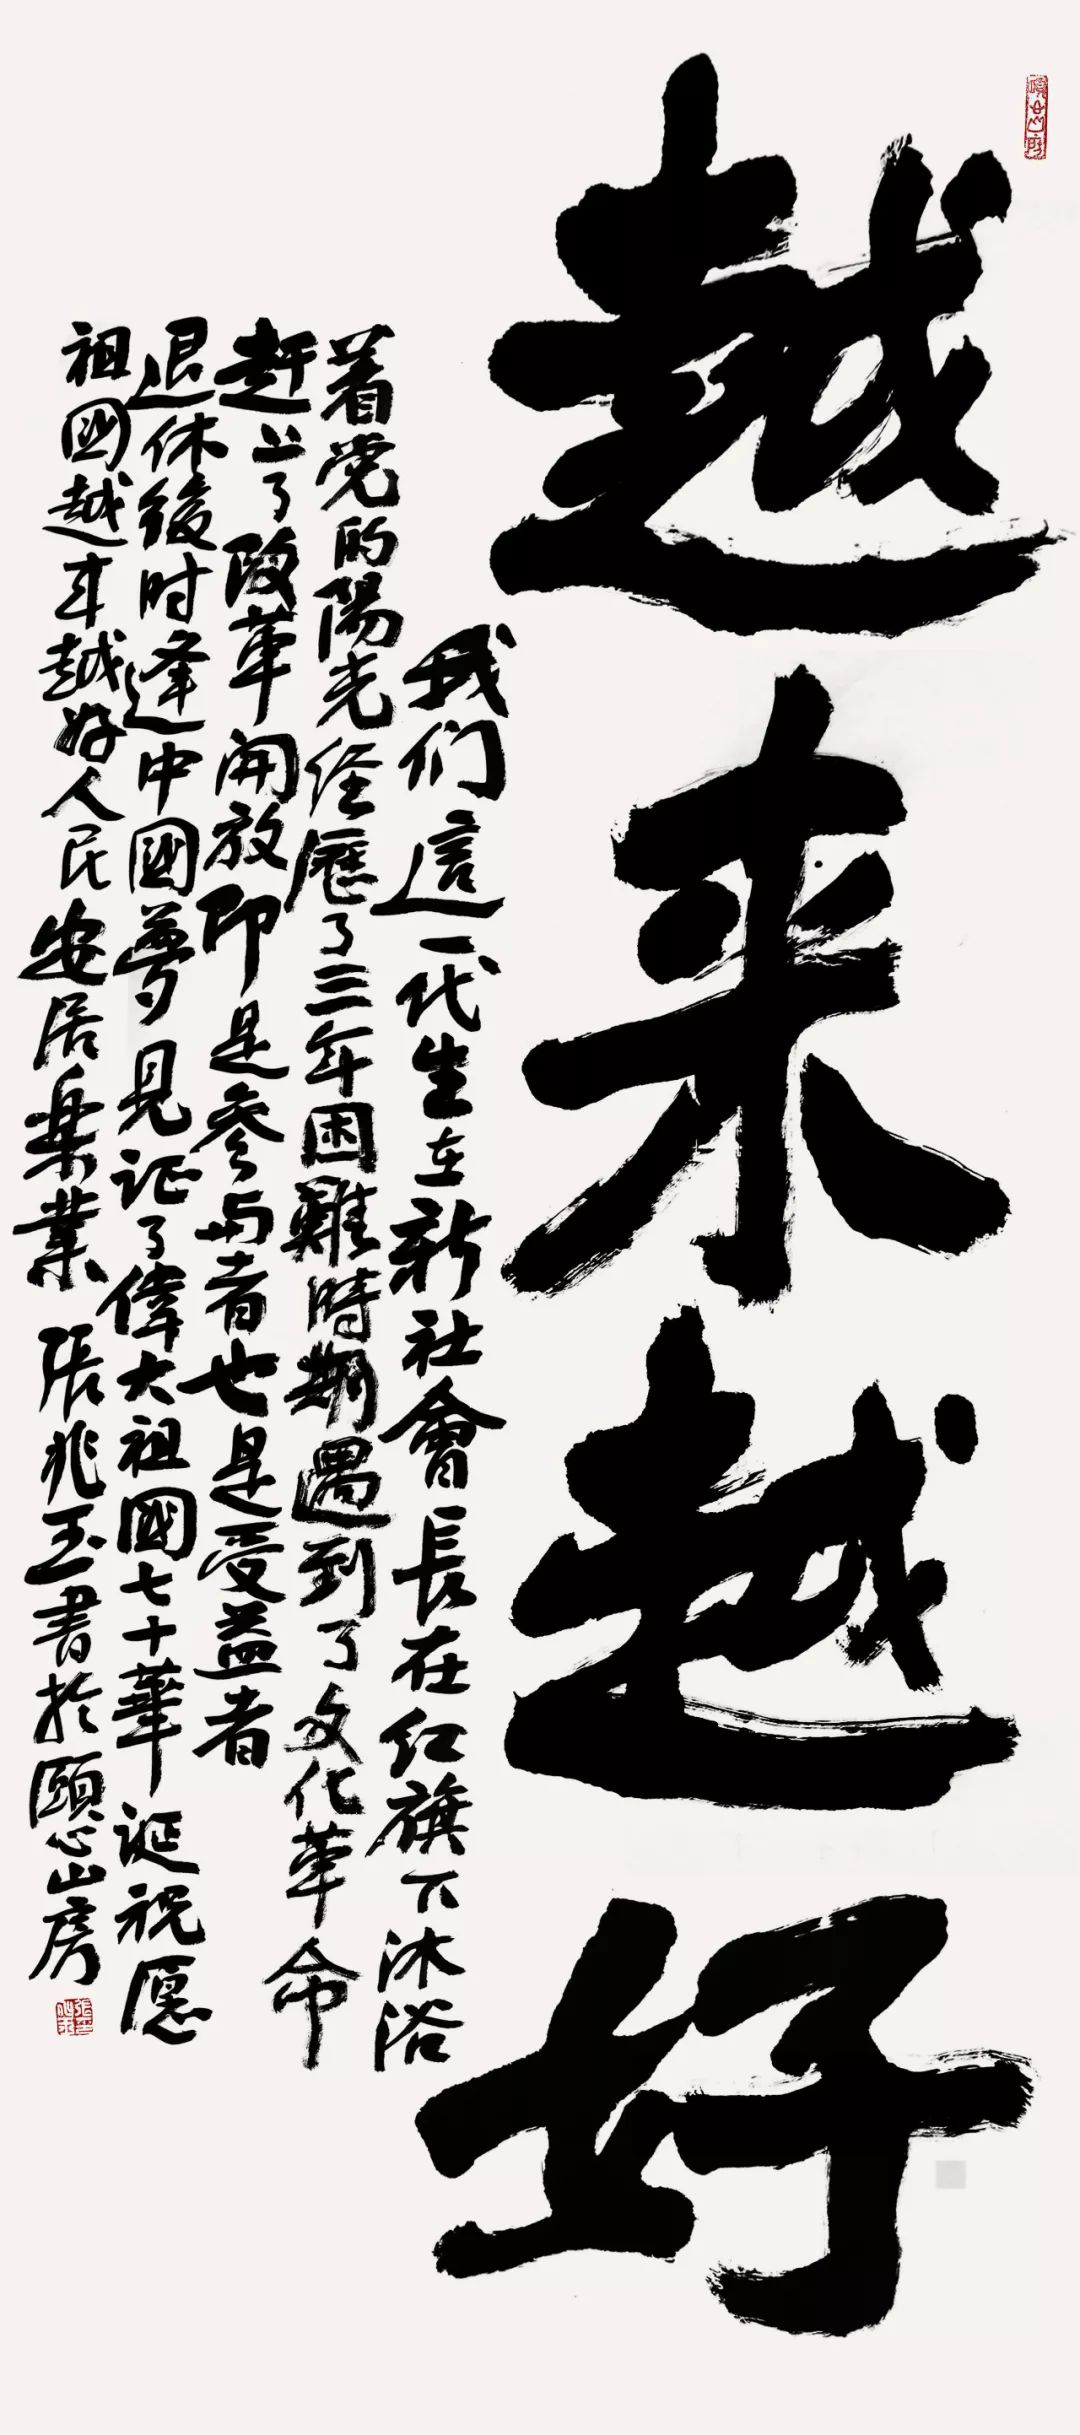 越来越好
我们這一代生在新社會長在红旗下沐浴
着党的陽光经歷了三年困難時期遇到了文化革命
赶上了改革開放即是參与者也是受益者
退休後时逢中國夢見证了偉大祖國七十華诞祝愿
祖國越来越好人民安居樂業 張兆玉書於頤心山房